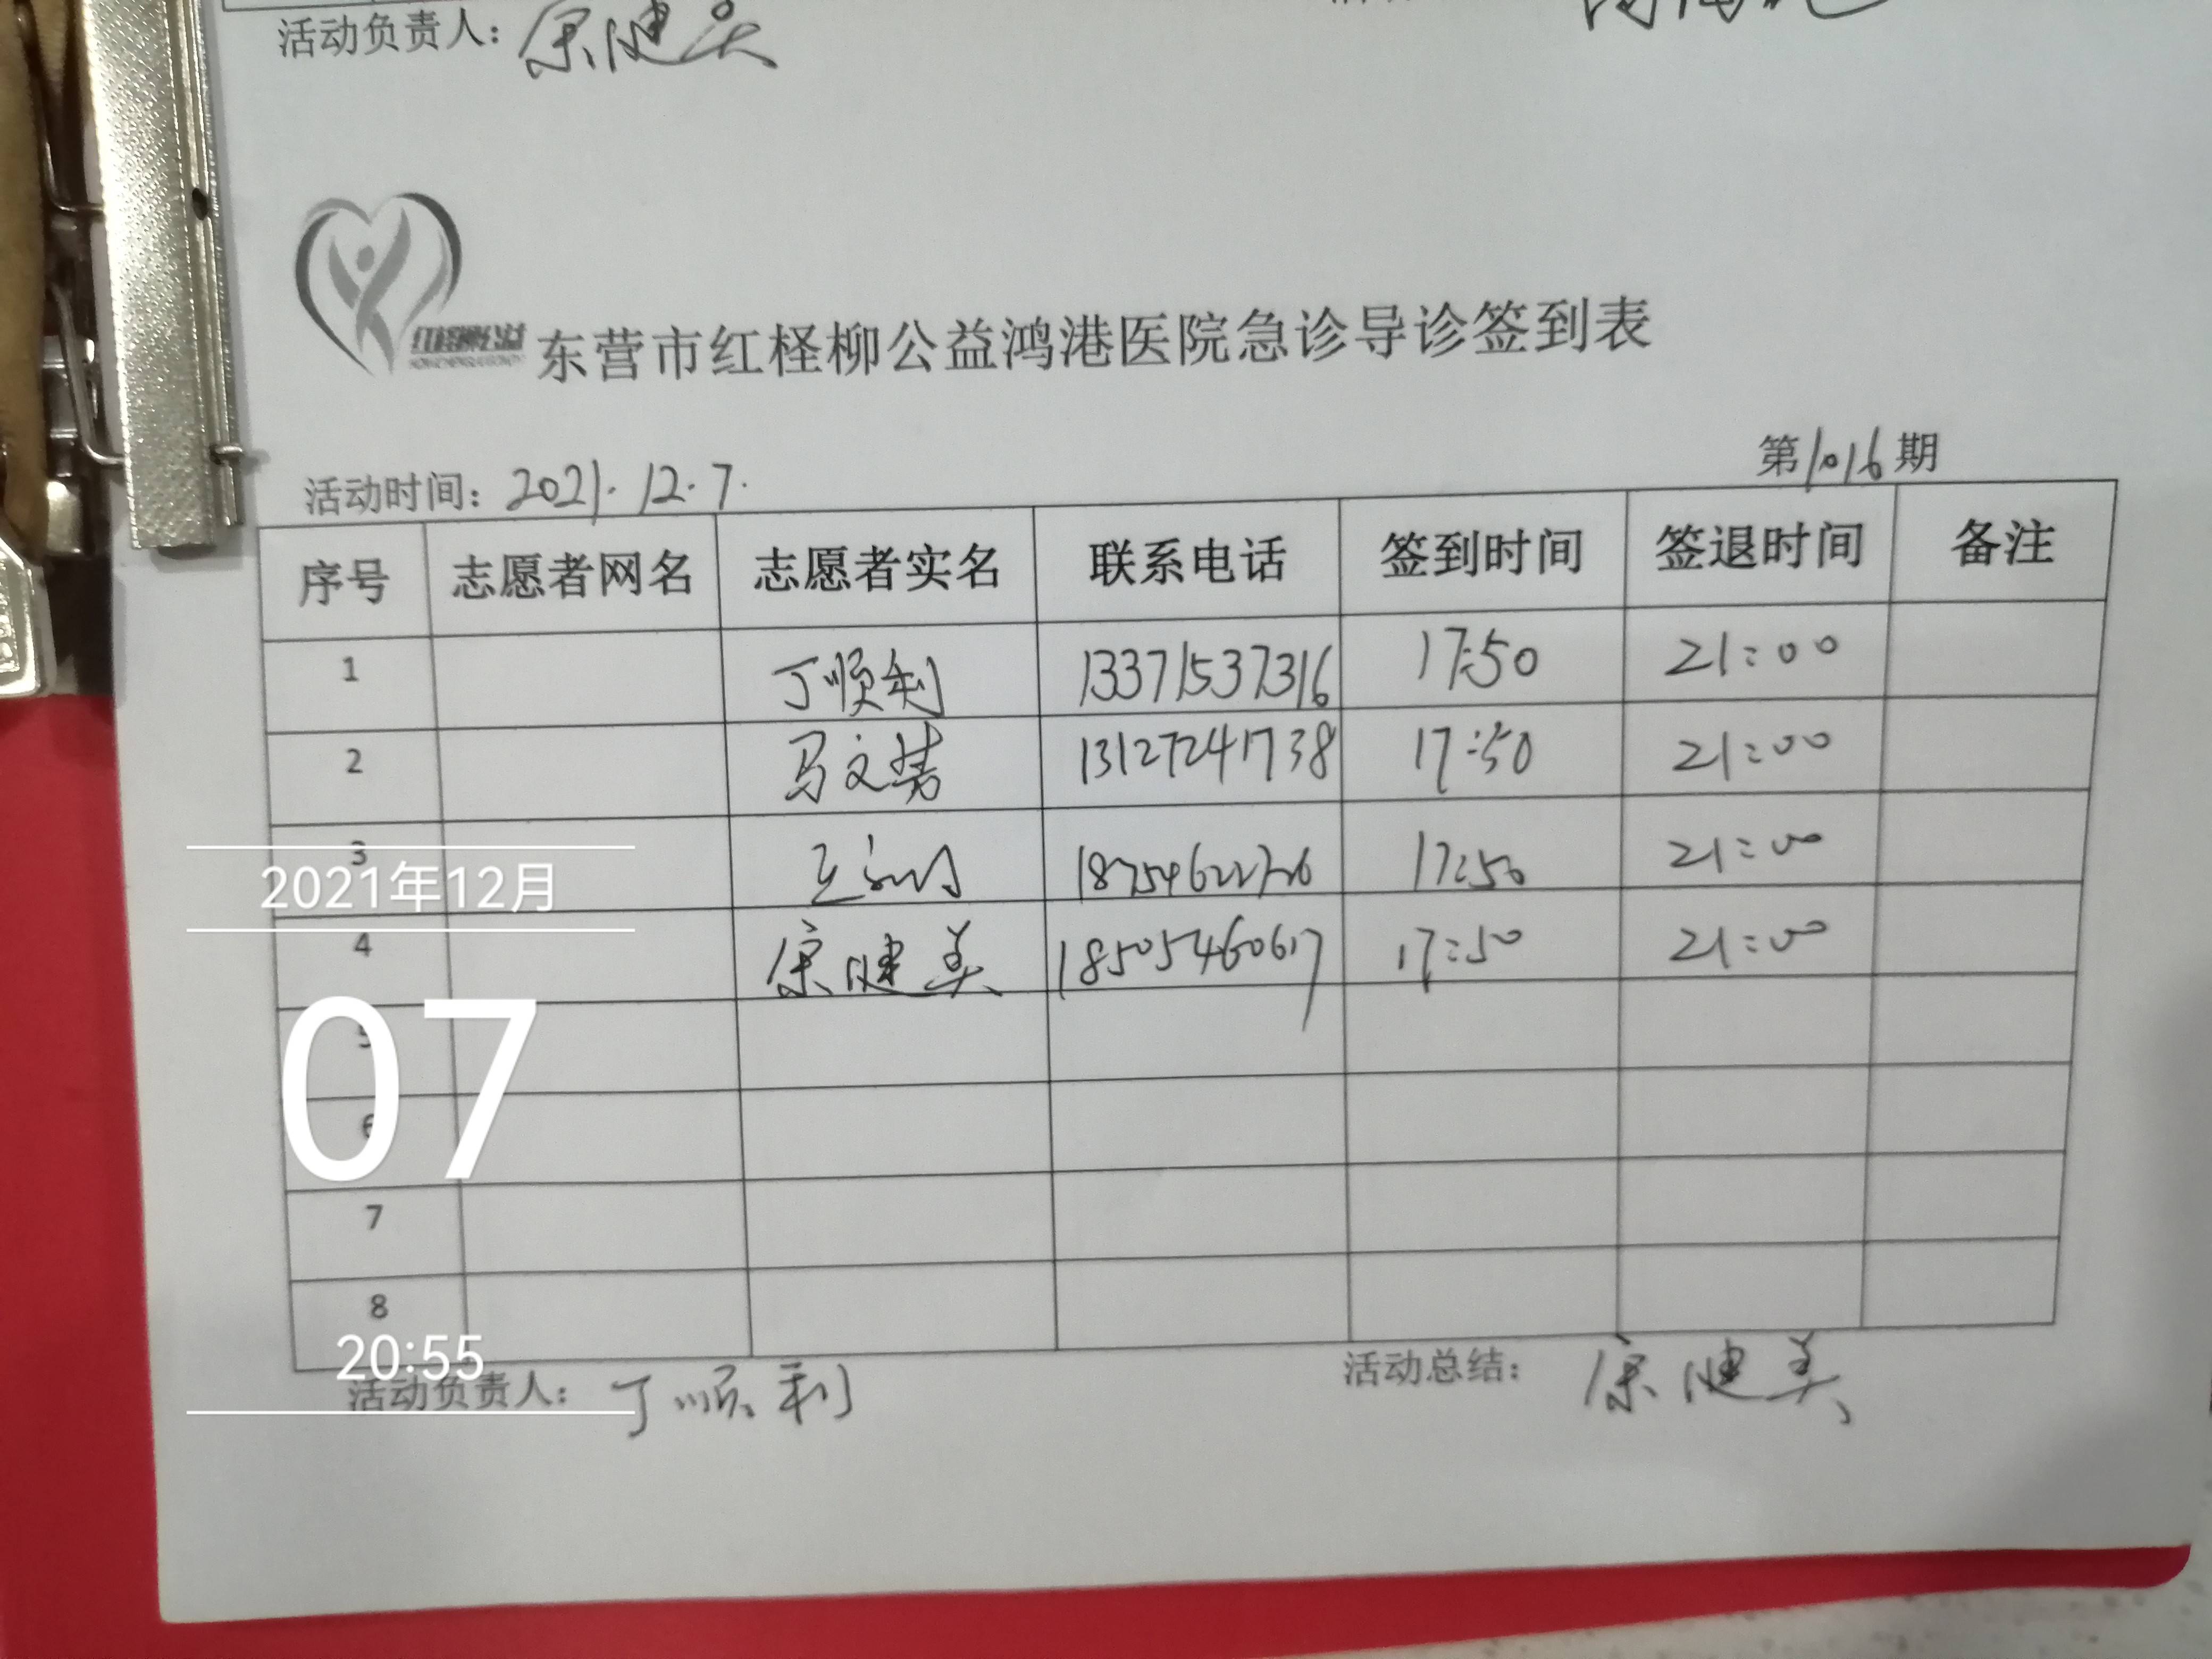 活动负责人：康健美
东营市红柽柳公益鸿港医院急诊导诊签到表
第1016期
活动时间：2021.12.7.
序号 志愿者网名 志愿者实名 联系电话 签到时间 签退时间 备注
1 丁顺利 13371537316 17:50 21:00
2 马文 13127241738 17:50 21:00
3 17:50 21:00
4 康健美 18505460617 17:50 21:00
5
6
7
8
活动负责人：丁顺利 活动总结：康健美
2021年12月
07
20:55